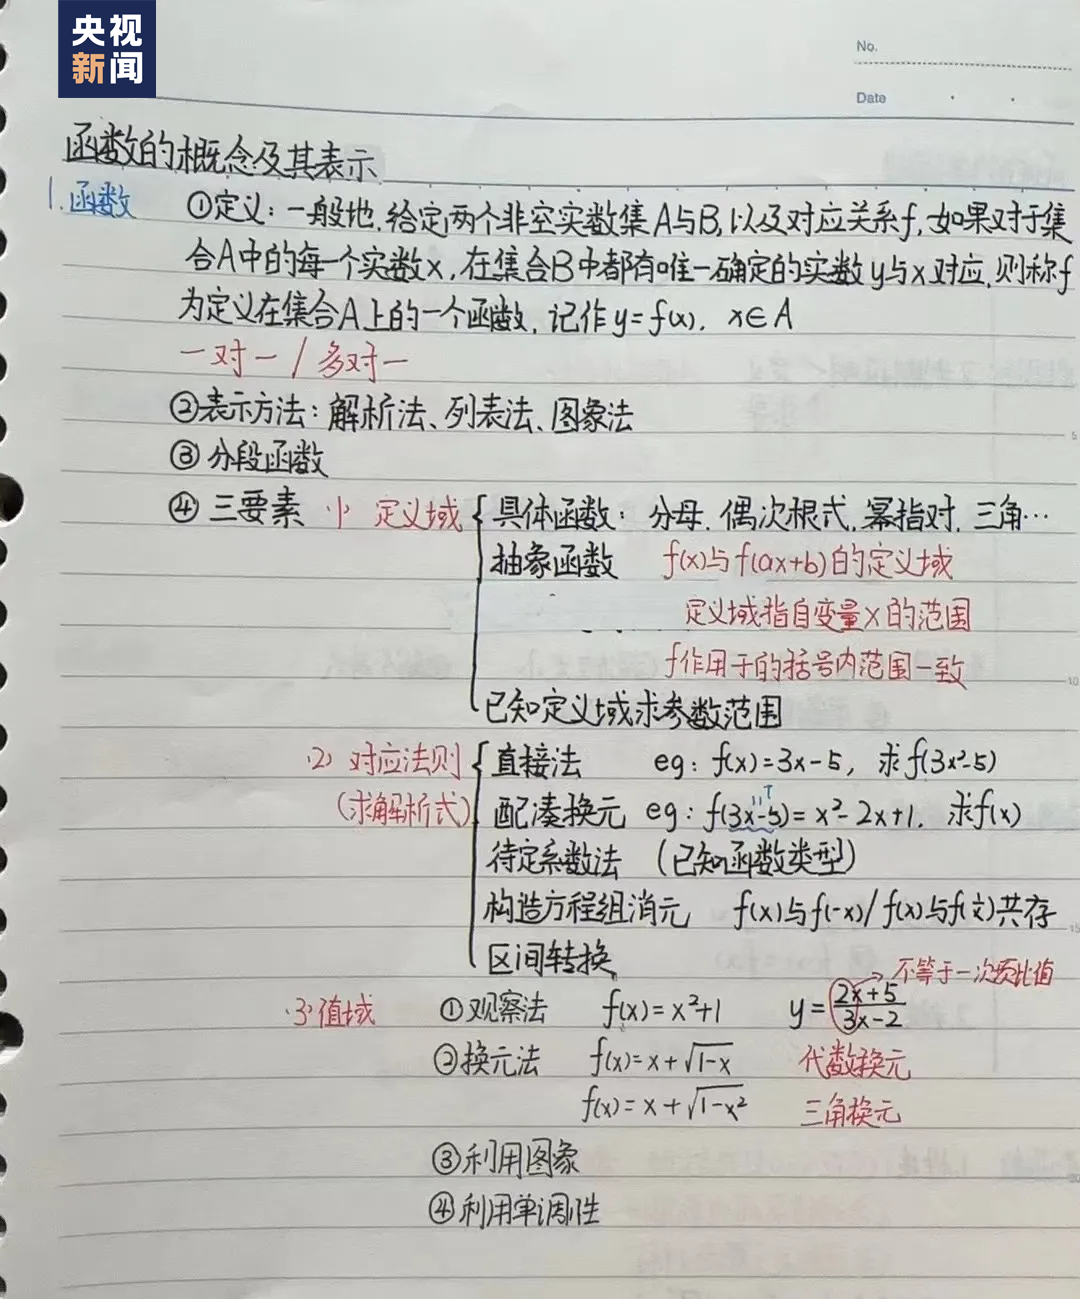 央视
新闻
No.
Date
函数的概念及其表示
1.函数 ①定义：一般地,给定两个非空实数集A与B,以及对应关系f,如果对于集
合A中的每一个实数x,在集合B中都有唯一确定的实数y与x对应,则称f
为定义在集合A上的一个函数,记作y=f(x). x∈A
一对一 / 多对一
②表示方法：解析法、列表法、图象法
5
③分段函数
④三要素 (1) 定义域 { 具体函数：分母,偶次根式,幂指对,三角…
抽象函数 f(x)与f(ax+b)的定义域
定义域指自变量x的范围
f作用于的括号内范围一致
10
已知定义域求参数范围
(2) 对应法则 { 直接法 eg: f(x)=3x-5, 求f(3x²-5)
T
(求解析式) 配凑换元 eg: f(3x-5)=x²-2x+1. 求f(x)
待定系数法 (已知函数类型)
构造方程组消元 f(x)与f(-x)/f(x)与f(1/x)共存
15
区间转换
不等于一次项比值
(3)值域 ①观察法 f(x)=x²+1 y=(2x+5)/(3x-2)
②换元法 f(x)=x+√(1-x) 代数换元
f(x)=x+√(1-x²) 三角换元
③利用图象
④利用单调性